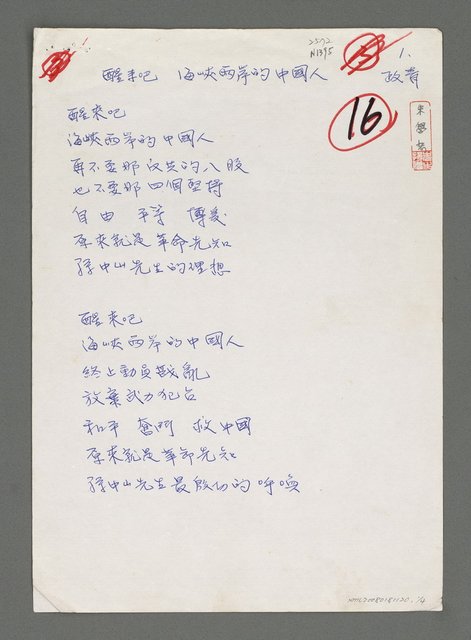 2572
N1395
1.
醒來吧 海峽兩岸的中國人
政青
16
醒來吧
海峽兩岸的中國人
再不要那反共的八股
也不要那四個堅持
自由 平等 博愛
原來就是革命先知
孫中山先生的理想
醒來吧
海峽兩岸的中國人
終止動員戡亂
放棄武力犯台
和平 奮鬥 救中國
原來就是革命先知
孫中山先生最殷切的呼喚